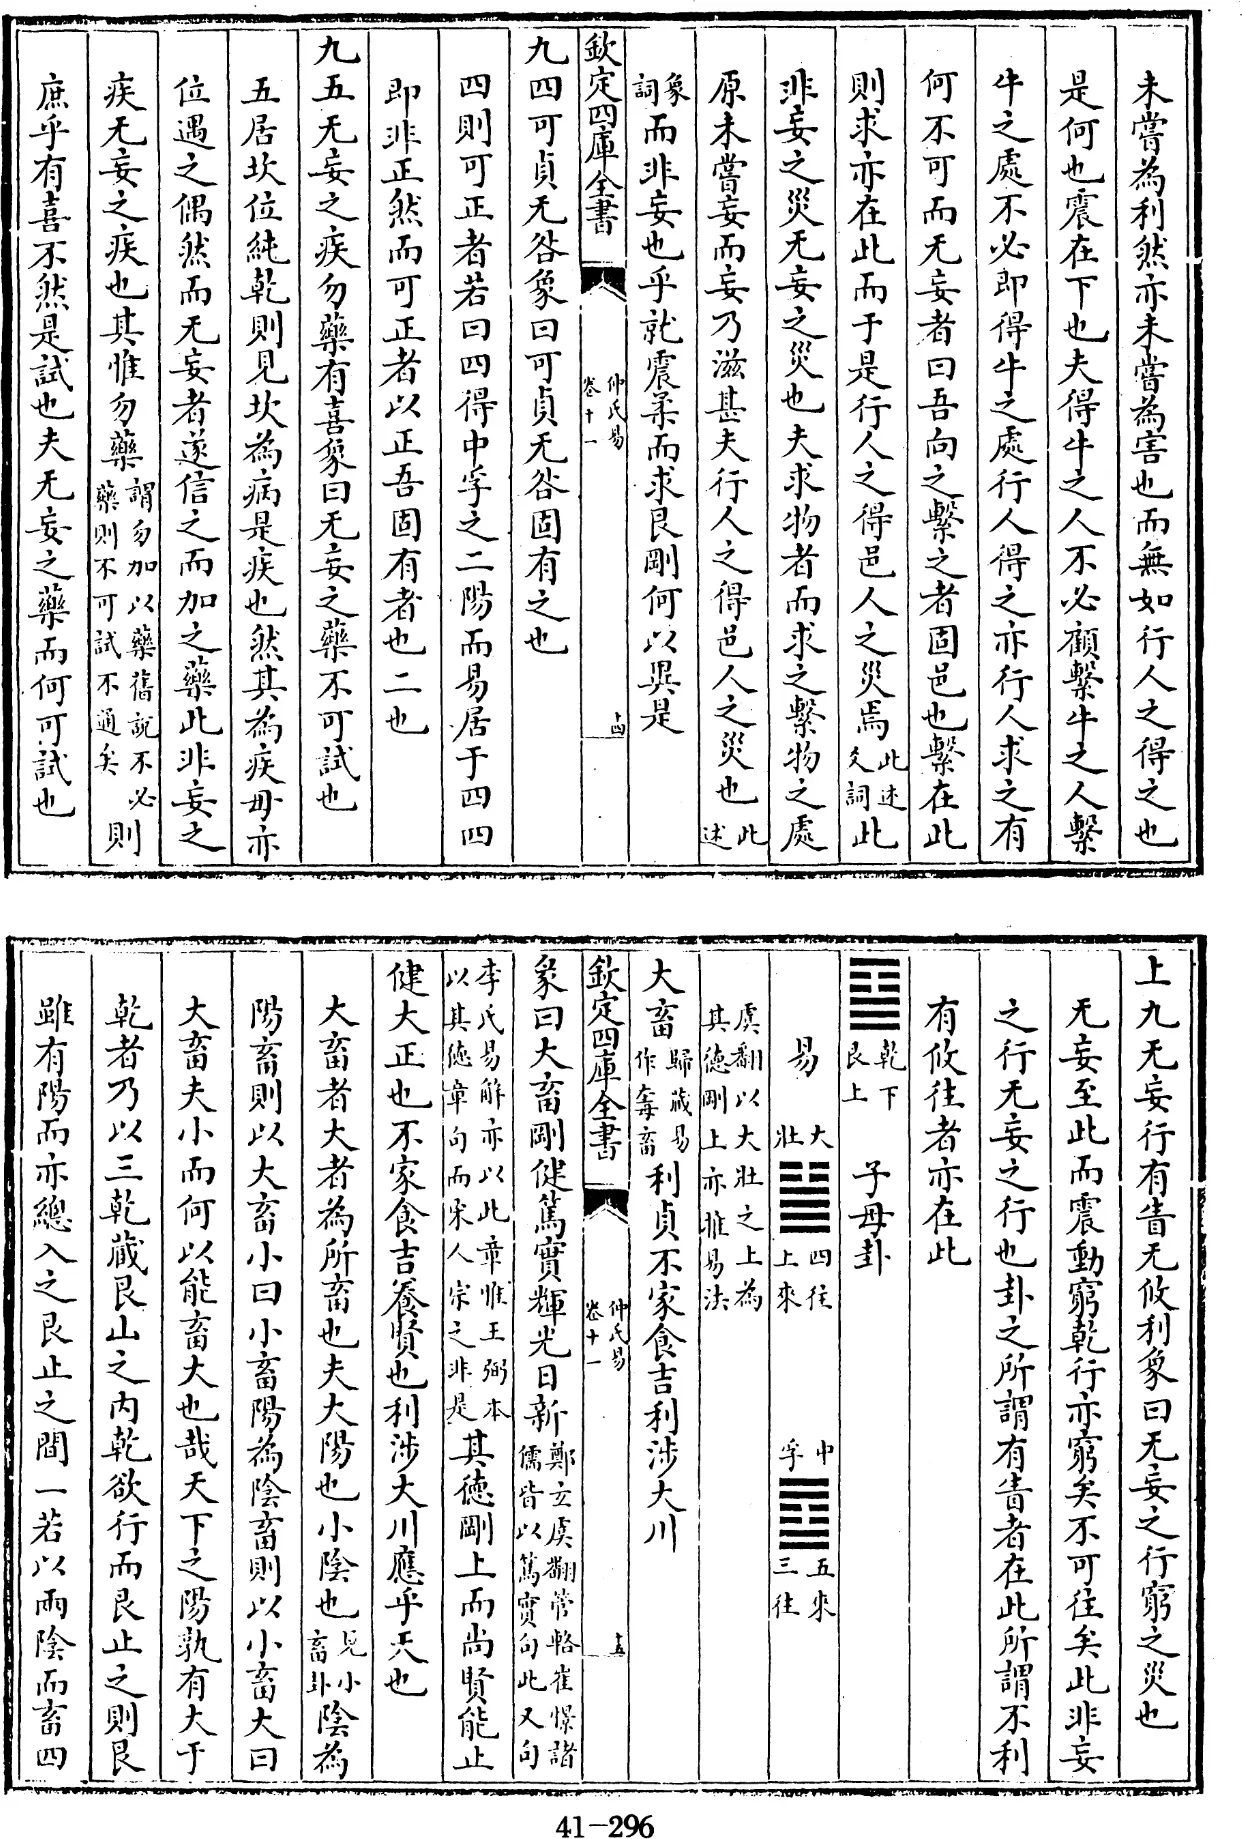 未嘗為利然亦未嘗為害也而無如行人之得之也
是何也震在下也夫得牛之人不必顧繫牛之人繫
牛之處不必即得牛之處行人得之亦行人求之有
何不可而无妄者曰吾向之繫之者固邑也繫在此
則求亦在此而于是行人之得邑人之災焉此述爻詞此
非妄之災无妄之災也夫求物者而求之繫物之處
原未嘗妄而妄乃滋甚夫行人之得邑人之災也此述
象詞而非妄也乎就震柔而求艮剛何以異是
欽定四庫全書 仲氏易 卷十一 十四
九四可貞无咎象曰可貞无咎固有之也
四則可正者若曰四得中孚之二陽而易居于四四
即非正然而可正者以正吾固有者也二也
九五无妄之疾勿藥有喜象曰无妄之藥不可試也
五居坎位純乾則見坎為病是疾也然其為疾毋亦
位遇之偶然而无妄者遂信之而加之藥此非妄之
疾无妄之疾也其惟勿藥謂勿加以藥舊說不必藥則不可試不通矣則
庶乎有喜不然是試也夫无妄之藥而何可試也
上九无妄行有眚无攸利象曰无妄之行窮之災也
无妄至此而震動窮乾行亦窮矣不可往矣此非妄
之行无妄之行也卦之所謂有眚者在此所謂不利
有攸往者亦在此
䷙乾下艮上 子母卦
易 大壯䷡四往上來 中孚䷼五來三往
虞翻以大壯之上為其德剛上亦推易法
大畜歸藏易作𡘽畜利貞不家食吉利涉大川
欽定四庫全書 仲氏易 卷十一 十五
彖曰大畜剛健篤實輝光日新鄭玄虞翻管輅崔憬諸儒皆以篤實句此又句
李氏易解亦以此章惟王弼本以其德章句而宋人宗之非是其德剛上而尚賢能止
健大正也不家食吉養賢也利涉大川應乎天也
大畜者大者為所畜也夫大陽也小陰也見小畜卦陰為
陽畜則以大畜小曰小畜陽為陰畜則以小畜大曰
大畜夫小而何以能畜大也哉天下之陽孰有大于
乾者乃以三乾藏艮山之內乾欲行而艮止之則艮
雖有陽而亦總入之艮止之間一若以兩陰而畜四
41-296